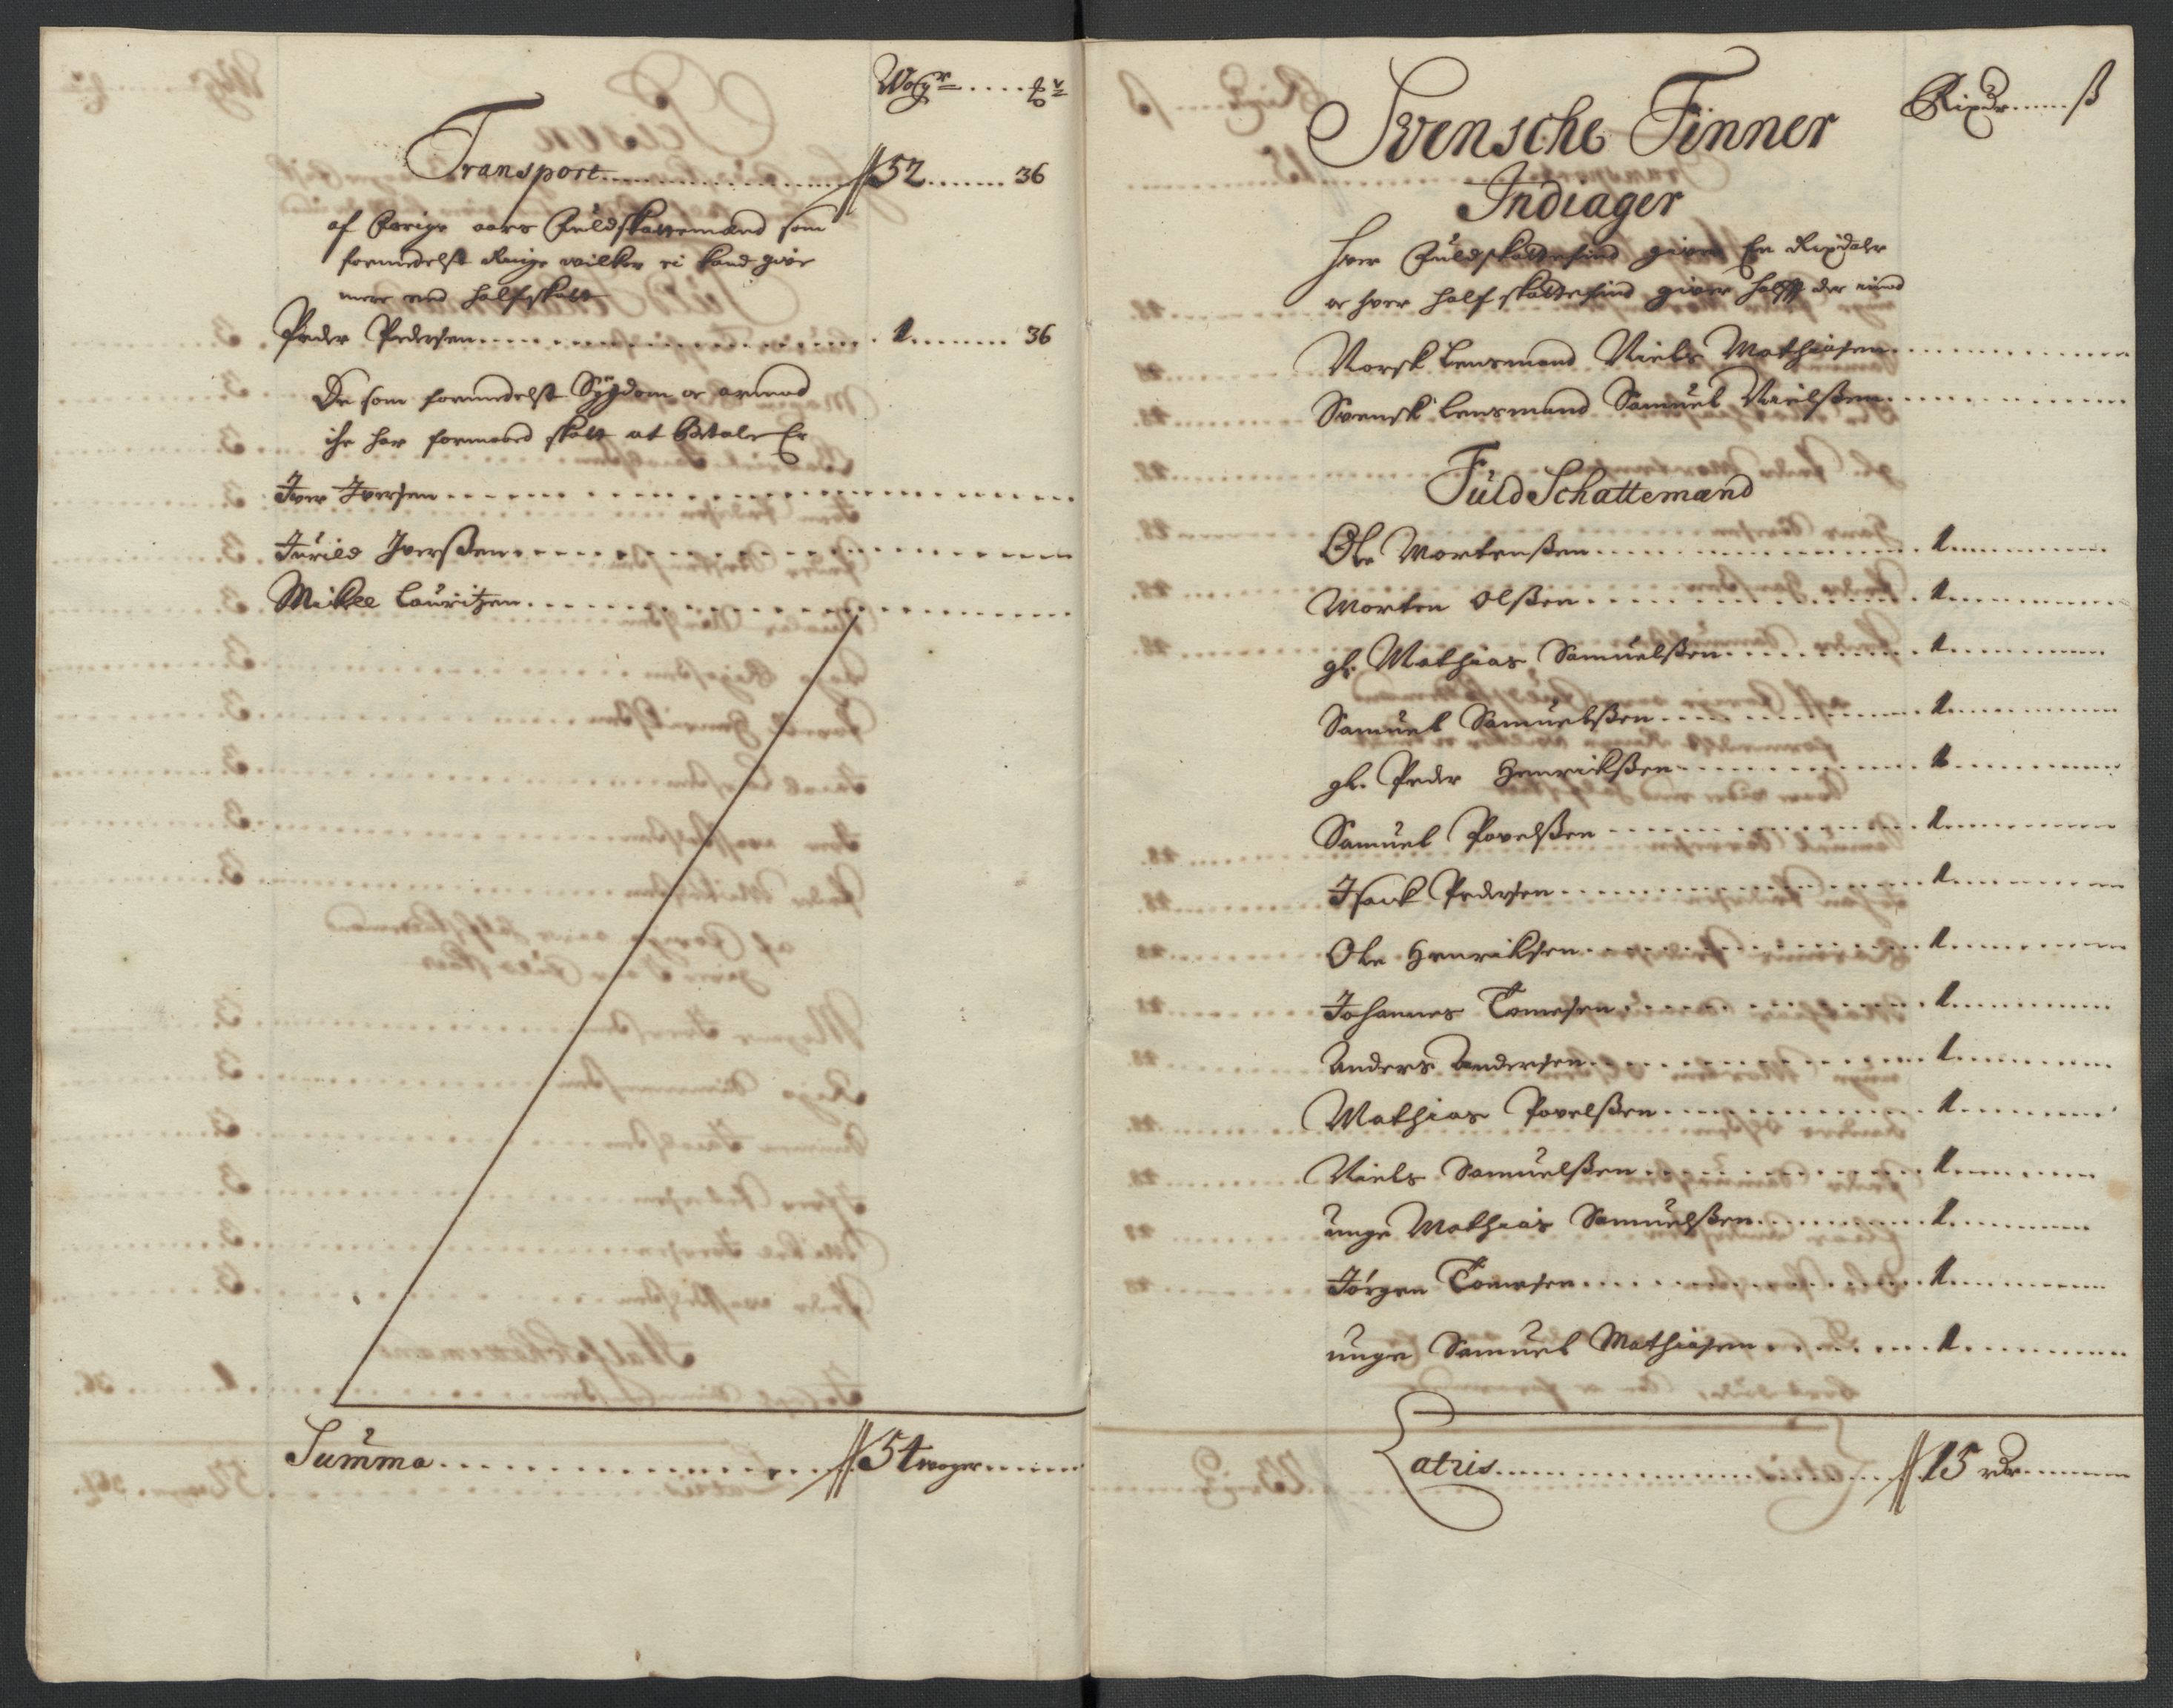 Wogr .... 
Transport ........ 52 ....... 36
af forige aars Fuldskattemænd som
formedelst Ringe wilkor ei kand give
mere end halfskatt
Peder Pedersen ........ 1 ........ 36
De som formedelst Sÿgdom oc armod
iche har formaaed skatt at betale Er
Iver Iversen ........
Jurild Iverßen ........
Mikkel Lauritzen ........
Summa ........ 54 woger ......
Svensche Finner
Rixdr ...... ß
Indiager
Hver Fuldskattefind giver En Rixdaler
oc hver half skattefind giver halff der imod
Norsk Lensmand Niels Mathiasen ........
Svensk Lensmand Samuel Nielßen ........
Fuld Schattemænd
Ole Mortenßen ........ 1 ........
Morten Olßen ........ 1 ........
gl. Mathias Samuelßen ........ 1 ........
Samuel Samuelßen ........ 1 ........
gl. Peder Henrickßen ........ 1 ........
Samuel Povelßen ........ 1 ........
Isack Pedersen ........ 1 ........
Ole Henriksen ........ 1 ........
Johannes Tomesen ........ 1 ........
Anders Andersen ........ 1 ........
Mathias Povelßen ........ 1 ........
Niels Samuelßen ........ 1 ........
unge Mathias Samuelßen ........ 1 ........
Jörgen Tomesen ........ 1 ........
unge Samuel Mathiasen ........ 1 ........
Latris ........ 15 rdr ........